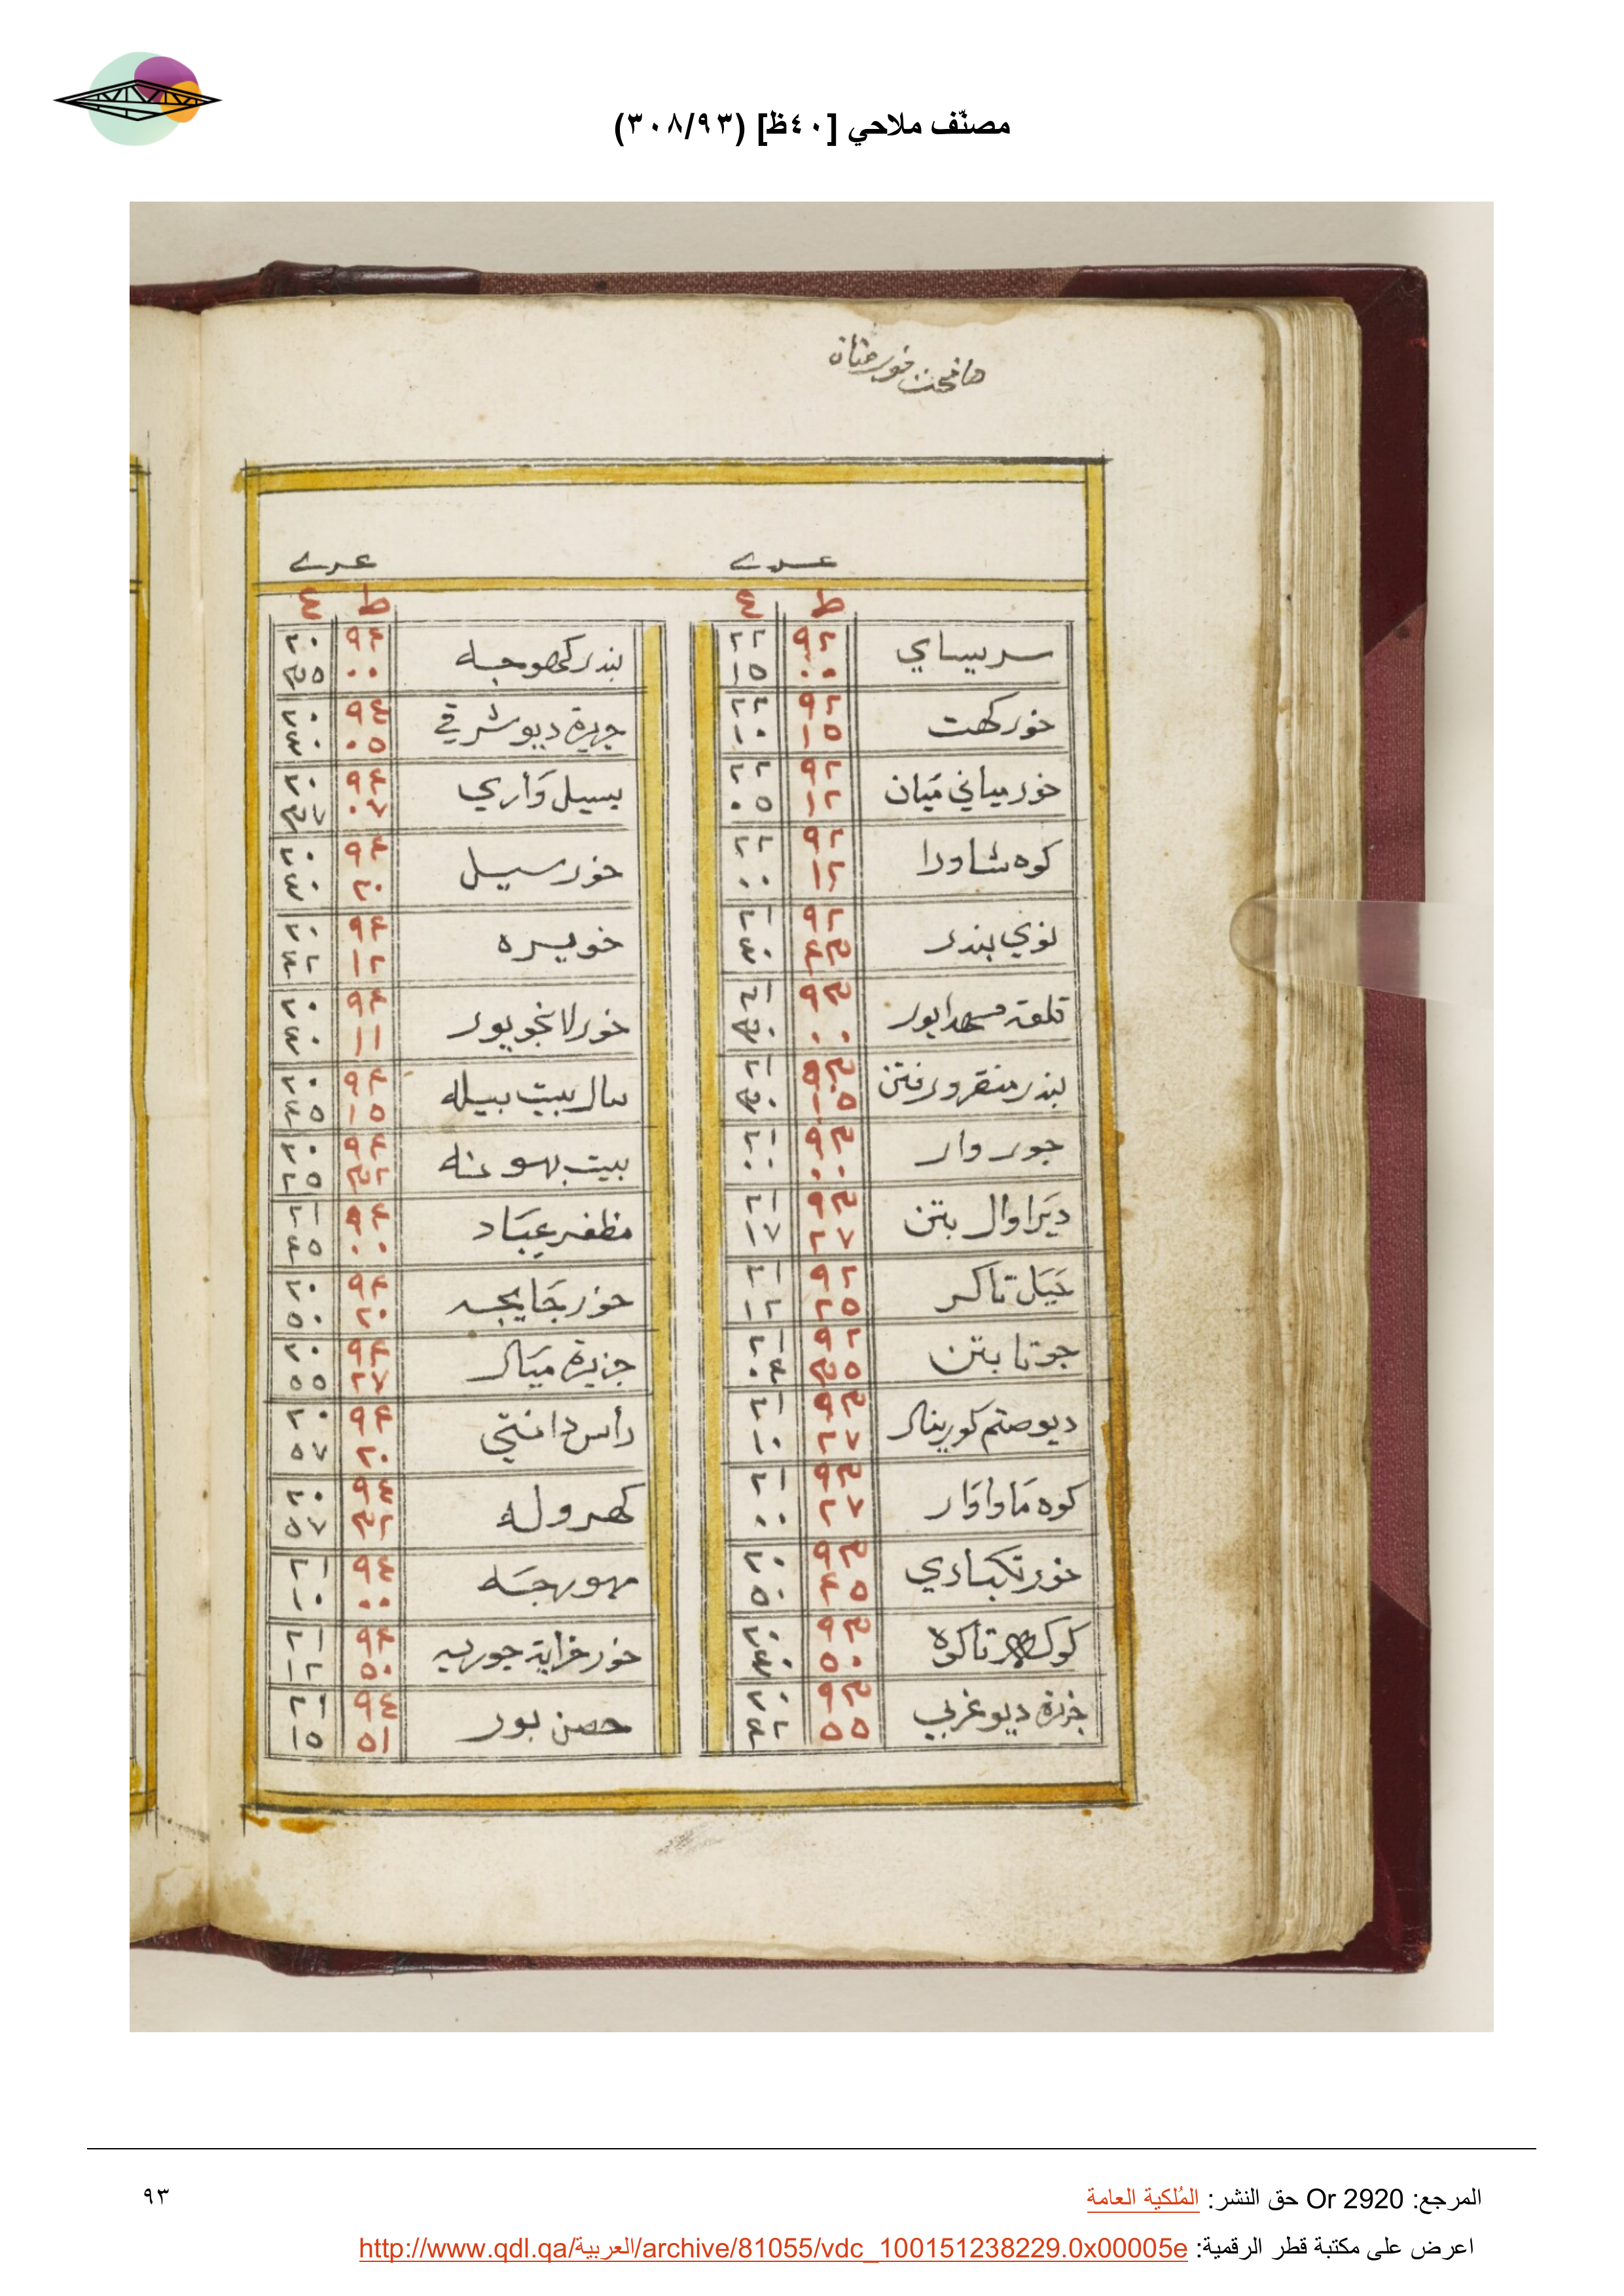 مصنّف ملاحي [٤٠ظ] (٣٠٨/٩٣)
ط ع
سربساي ٩٢ ٠٠ ٢٢ ١٥
خور كهت ٩٢ ١٥ ٢٢ ١٠
خور مياني ميَان ٩٢ ١٢ ٢٢ ٠٥
كوه شاورا ٩٢ ١٢ ٢٢ ٠٠
نوي بندر ٩٢ ٤٣ ٢١ ٤٠
قلعة ٩٣ ٠٠ ٢١ ٣٠
بندر منقرور فتن ٩٣ ١٥ ٢١ ٣٠
جور وار ٩٣ ٠٠ ٢١ ٠٠
ديَراوال بتن ٩٣ ٢٧ ٢١ ١٧
جَيَل تاكر ٩٢ ٢٥ ٢١ ١٢
جوتا بتن ٩٢ ٣٥ ٢١ ٠٤
ديو صتم كورينار ٩٣ ٢٧ ٢١ ١٠
كوه مَاواوَار ٩٣ ٢٧ ٢١ ٠٠
خور تكبادي ٩٣ ٤٥ ٢٠ ٥٠
تاكوه ٩٣ ٥٠ ٢٠ ٤٠
جزيرة ديو غربي ٩٣ ٥٥ ٢٠ ٤٢
ط ع
بندر كهوجه ٩٤ ٠٠ ٢٠ ٣٥
جزيرة ديو شرقي ٩٤ ٠٥ ٢٠ ٤٠
بسيل وَاري ٩٤ ٠٧ ٢٠ ٣٧
خور سيل ٩٤ ٢٠ ٢٠ ٤٠
خويره ٩٤ ١٢ ٢٠ ٤٢
خور لانجو پور ٩٤ ١١ ٢٠ ٤٠
سال بيت بيله ٩٤ ١٥ ٢٠ ٤٥
بيت بهوعنه ٩٤ ٣٢ ٢٠ ٢٥
مظفر عبَاد ٩٤ ٠٠ ٢١ ٤٥
خور جَانجه ٩٤ ٢٠ ٢٠ ٥٠
جزيرة ميَال ٩٤ ٢٧ ٢٠ ٥٥
رأس دانتي ٩٤ ٢٠ ٢٠ ٥٧
كهروله ٩٤ ٣٢ ٢٠ ٥٧
مهورجَه ٩٤ ٠٠ ٢١ ١٠
خور خرابة جوريه ٩٤ ٥٠ ٢١ ١٢
حصن بور ٩٤ ٥١ ٢١ ١٥
المرجع: Or 2920 حق النشر: المُلكية العامة
٩٣
اعرض على مكتبة قطر الرقمية: http://www.qdl.qa/العربية/archive/81055/vdc_100151238229.0x00005e